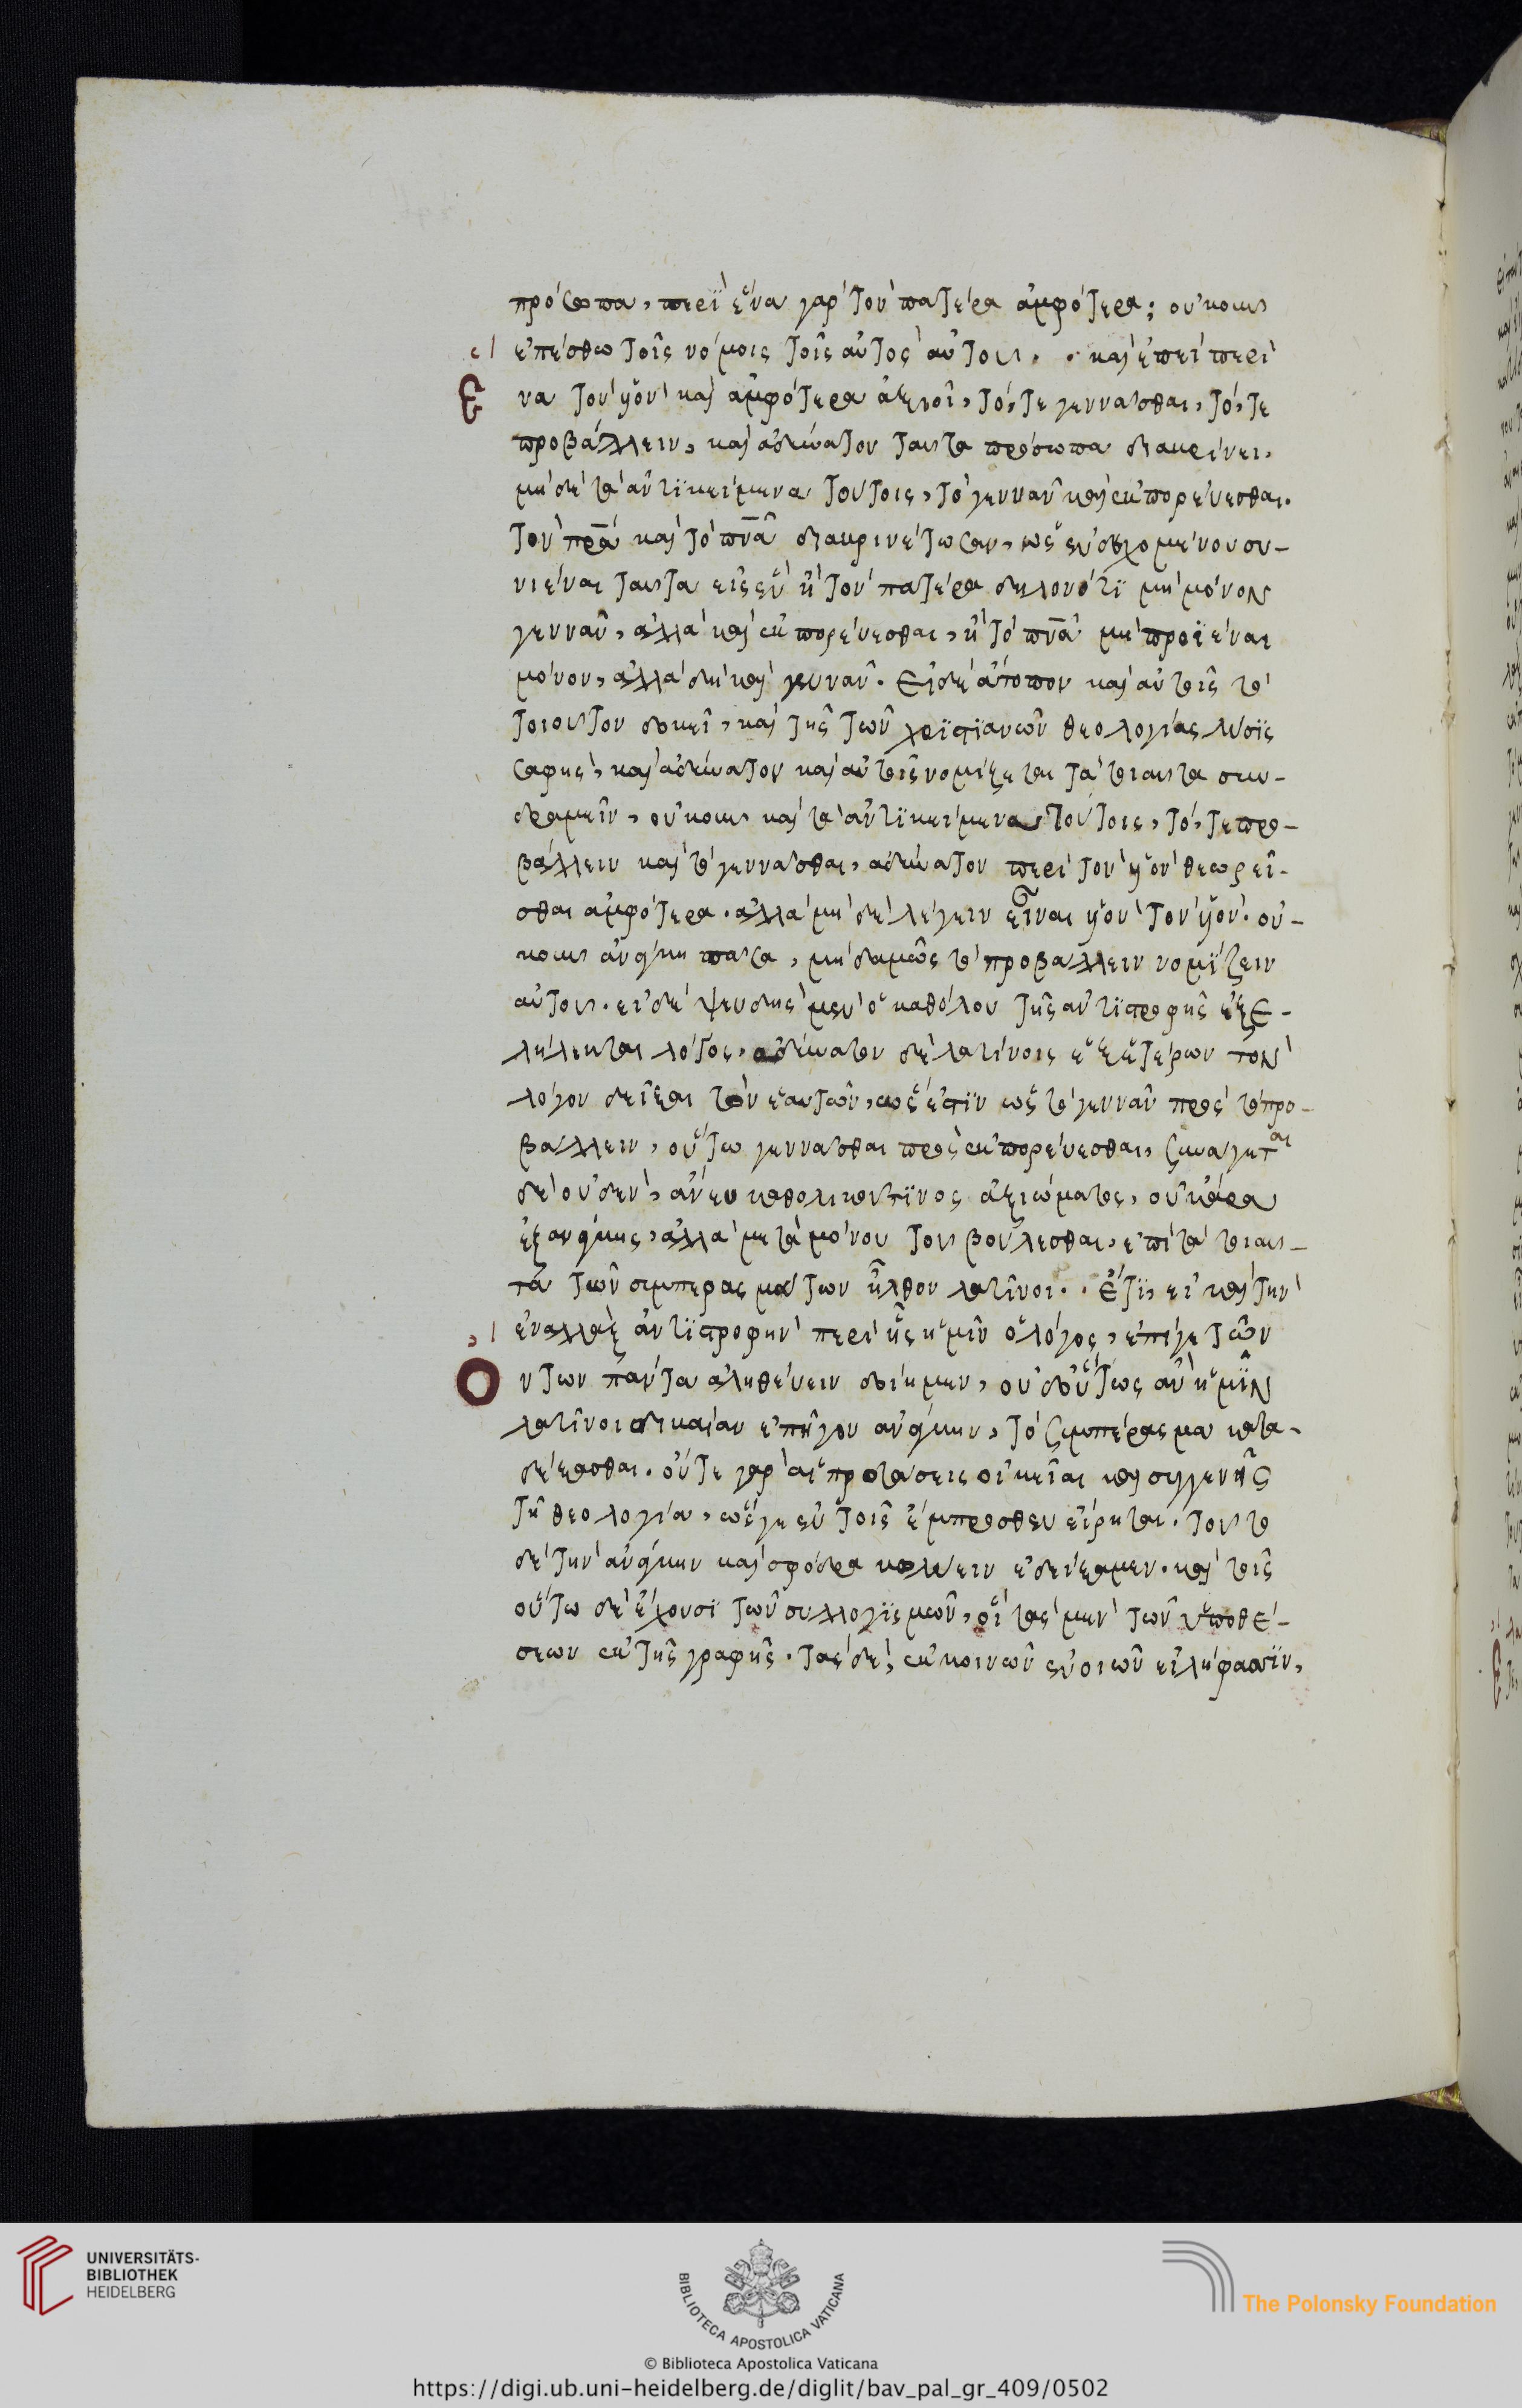 πρόσωπα, περὶ ἕνα γὰρ τὸν πατέρα ἀμφότερα; οὐκοῦν
ἑπέσθω τοῖς νόμοις τοῖς αὐτὸς αὐτοῦ. καὶ ἐπεὶ περὶ
Ε να τὸν ὑὸν καὶ ἀμφότερα ἀξιοῖ, τό,τε γεννᾶσθαι, τό,τε
προβάλλειν, καὶ ἀδύνατον ταῦτα πρόσωπα διακρίνει,
μὴ δὲ τὰ ἀντικείμενα τούτοις, τὸ γεννᾶν καὶ ἐκπορεύεσθαι.
τὸν πρα καὶ τὸ πνα διακρινέτωσαν, ὡς ἐνδεχομένου συ-
νιέναι ταῦτα εἰς ἓν ἢ τὸν πατέρα δηλονότι μὴ μόνον
γεννᾶν, ἀλλὰ καὶ ἐκπορεύεσθαι, ἢ τὸ πνα μὴ προϊέναι
μόνον, ἀλλὰ δὴ καὶ γεννᾶν. Εἰ δὲ ἄτοπον καὶ αὐτοῖς τὸ
τοιοῦτον δοκεῖ, καὶ τῆς τῶν χριστιανῶν θεολογίας λύσις
σαφὴς, καὶ ἀδύνατον καὶ αὐτοῖς νομίζεται τὰ τοιαῦτα συν-
δραμεῖν, οὐκοῦν καὶ τὰ ἀντικείμενα τούτοις, τό,τε προ-
βάλλειν καὶ τὸ γεννᾶσθαι, ἀδύνατον περὶ τὸν ὑὸν θεωρεῖ-
σθαι ἀμφότερα. ἀλλὰ μὴ δὲ λέγειν εἶναι ὑὸν τὸν ὑόν. οὐ-
κοῦν ἀνάγκη πᾶσα, μηδαμῶς τὸ προβάλλειν νομίζειν
αὐτοῦ. εἰ δὲ ψευδὴς μὲν ὁ καθόλου τῆς ἀντιστροφῆς ἐξε-
λήλεκται λόγος, ἀδύνατον δὲ λατίνοις ἐξ ἑτέρων τὸν
λόγον δεῖξαι τὸν ἑαυτῶν, ὡς ἔστιν ὡς τὸ γεννᾶν πρὸς τὸ προ-
βάλλειν, οὕτω γεννᾶσθαι πρὸς ἐκπορεύεσθαι, συνάγεται
δὲ οὐδὲν, ἄνευ καθολικοῦ τινος ἀξιώματος, οὐκ ἄρα
ἐξ ἀνάγκης, ἀλλὰ μετὰ μόνου τοῦ βούλεσθαι, ἐπὶ τὰ τοιαῦ-
τα τῶν συμπερασμάτων ἦλθον λατῖνοι. Ἔτι, εἰ καὶ τὴν
ἐναλλὰξ ἀντιστροφὴν περὶ ἧς ἡμῖν ὁ λόγος, ἐπί γε τῶν
Ο ντων πάντα ἀληθεύειν δοίημεν, οὐδ' οὕτως ἂν ἡμῖν
λατῖνοι δικαίαν ἐπῆγον ἀνάγκην, τὸ συμπέρασμα κατα-
δέξασθαι. οὔτε γὰρ αἱ προτάσεις οἰκεῖαι καὶ συγγενεῖς
τῇ θεολογίᾳ, ὥς γε ἐν τοῖς ἔμπροσθεν εἴρηται. τοῦτο
δὲ τὴν ἀνάγκην καὶ σφόδρα κωλύειν ἐδείξαμεν. καὶ τοῖς
οὕτω δὲ ἔχουσι τῶν συλλογισμῶν, οἳ τὰς μὲν τῶν ὑποθέ-
σεων ἐκ τῆς γραφῆς. τὰς δὲ, ἐκ κοινῶν ἐνοιῶν εἰλήφασιν,
UNIVERSITÄTS-
BIBLIOTHEK
HEIDELBERG
BIBLIOTECA APOSTOLICA VATICANA
The Polonsky Foundation
© Biblioteca Apostolica Vaticana
https://digi.ub.uni-heidelberg.de/diglit/bav_pal_gr_409/0502